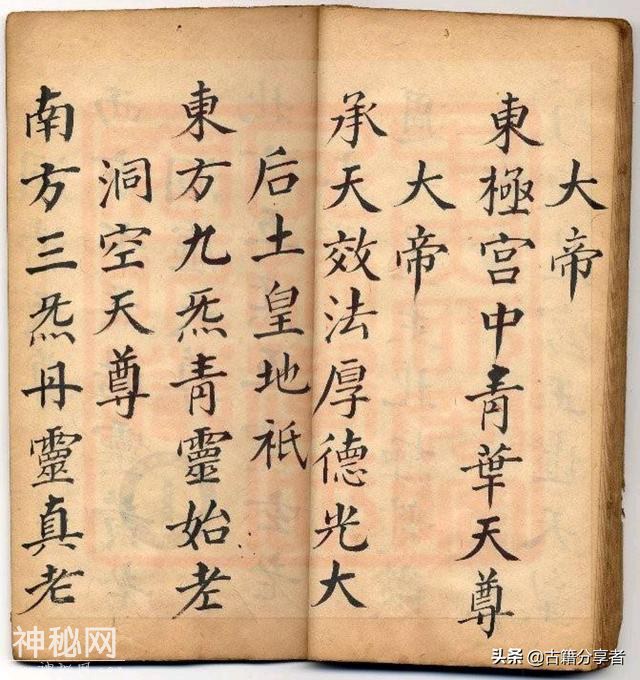 大帝
東極宮中青華天尊
大帝
承天效法厚德光大
后土皇地祇
東方九炁青靈始老
洞空天尊
南方三炁丹靈真老
神秘网
头条 @古籍分享者